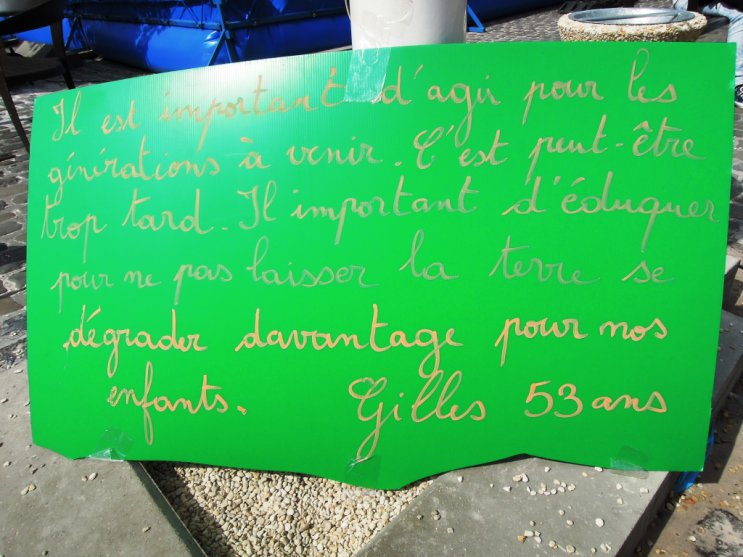 Il est important d'agir pour les
générations à venir. C'est peut-être
trop tard. Il important d'éduquer
pour ne pas laisser la terre se
dégrader davantage pour nos
enfants. Gilles 53 ans